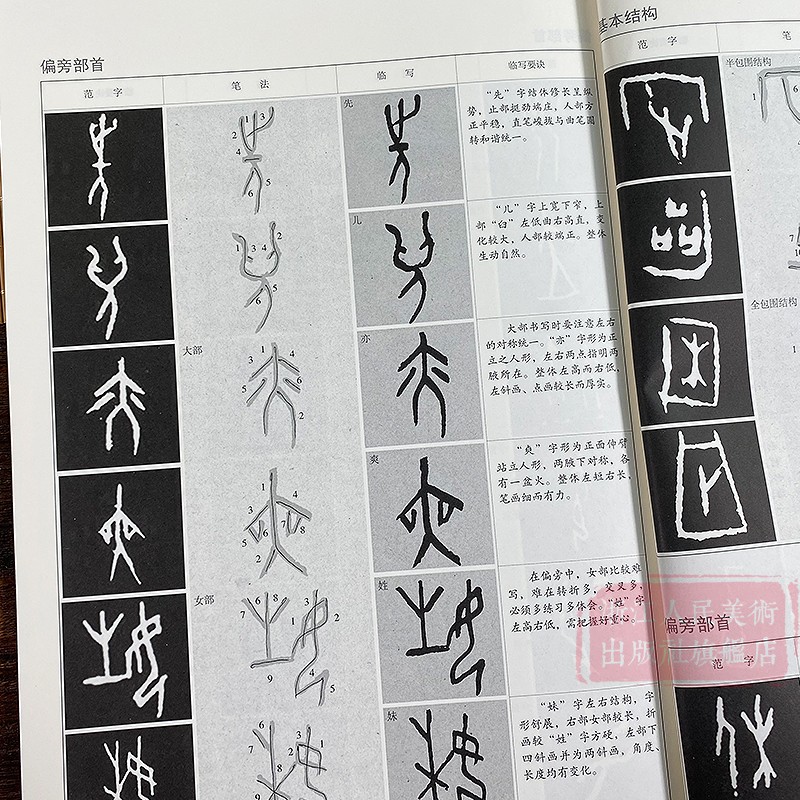 偏旁部首
范字 笔法 临写 临写要诀
先
“先”字结体修长呈纵
势，止部挺劲端庄，人部方
正平稳，直笔峻拔与曲笔圆
转和谐统一。
儿
“儿”字上宽下窄，上
部“臼”左低曲右高直，变
化较大，人部较端正。整体
生动自然。
大部
亦
大部书写时要注意左右
的对称统一。“亦”字形为正
立之人形，左右两点指明两
腋所在。整体左高而右低，
左斜画、点画较长而厚实。
爽
“爽”字形为正面伸臂
站立人形，两腋下对称，各
有一盆火。整体左短右长、
笔画细而有力。
女部
姓
在偏旁中，女部比较难
写，难在转折多、交叉多，
必须多练习多体会。“姓”字
左高右低，需把握好重心。
妹
“妹”字左右结构，字
形舒展，右部女部较长，折
画较“姓”字方硬，左部下
四斜画并为两斜画，角度、
长度均有变化。
基本结构
范字 笔
半包围结构
全包围结构
偏旁部首
范字
人民美術
出版社旗艦店